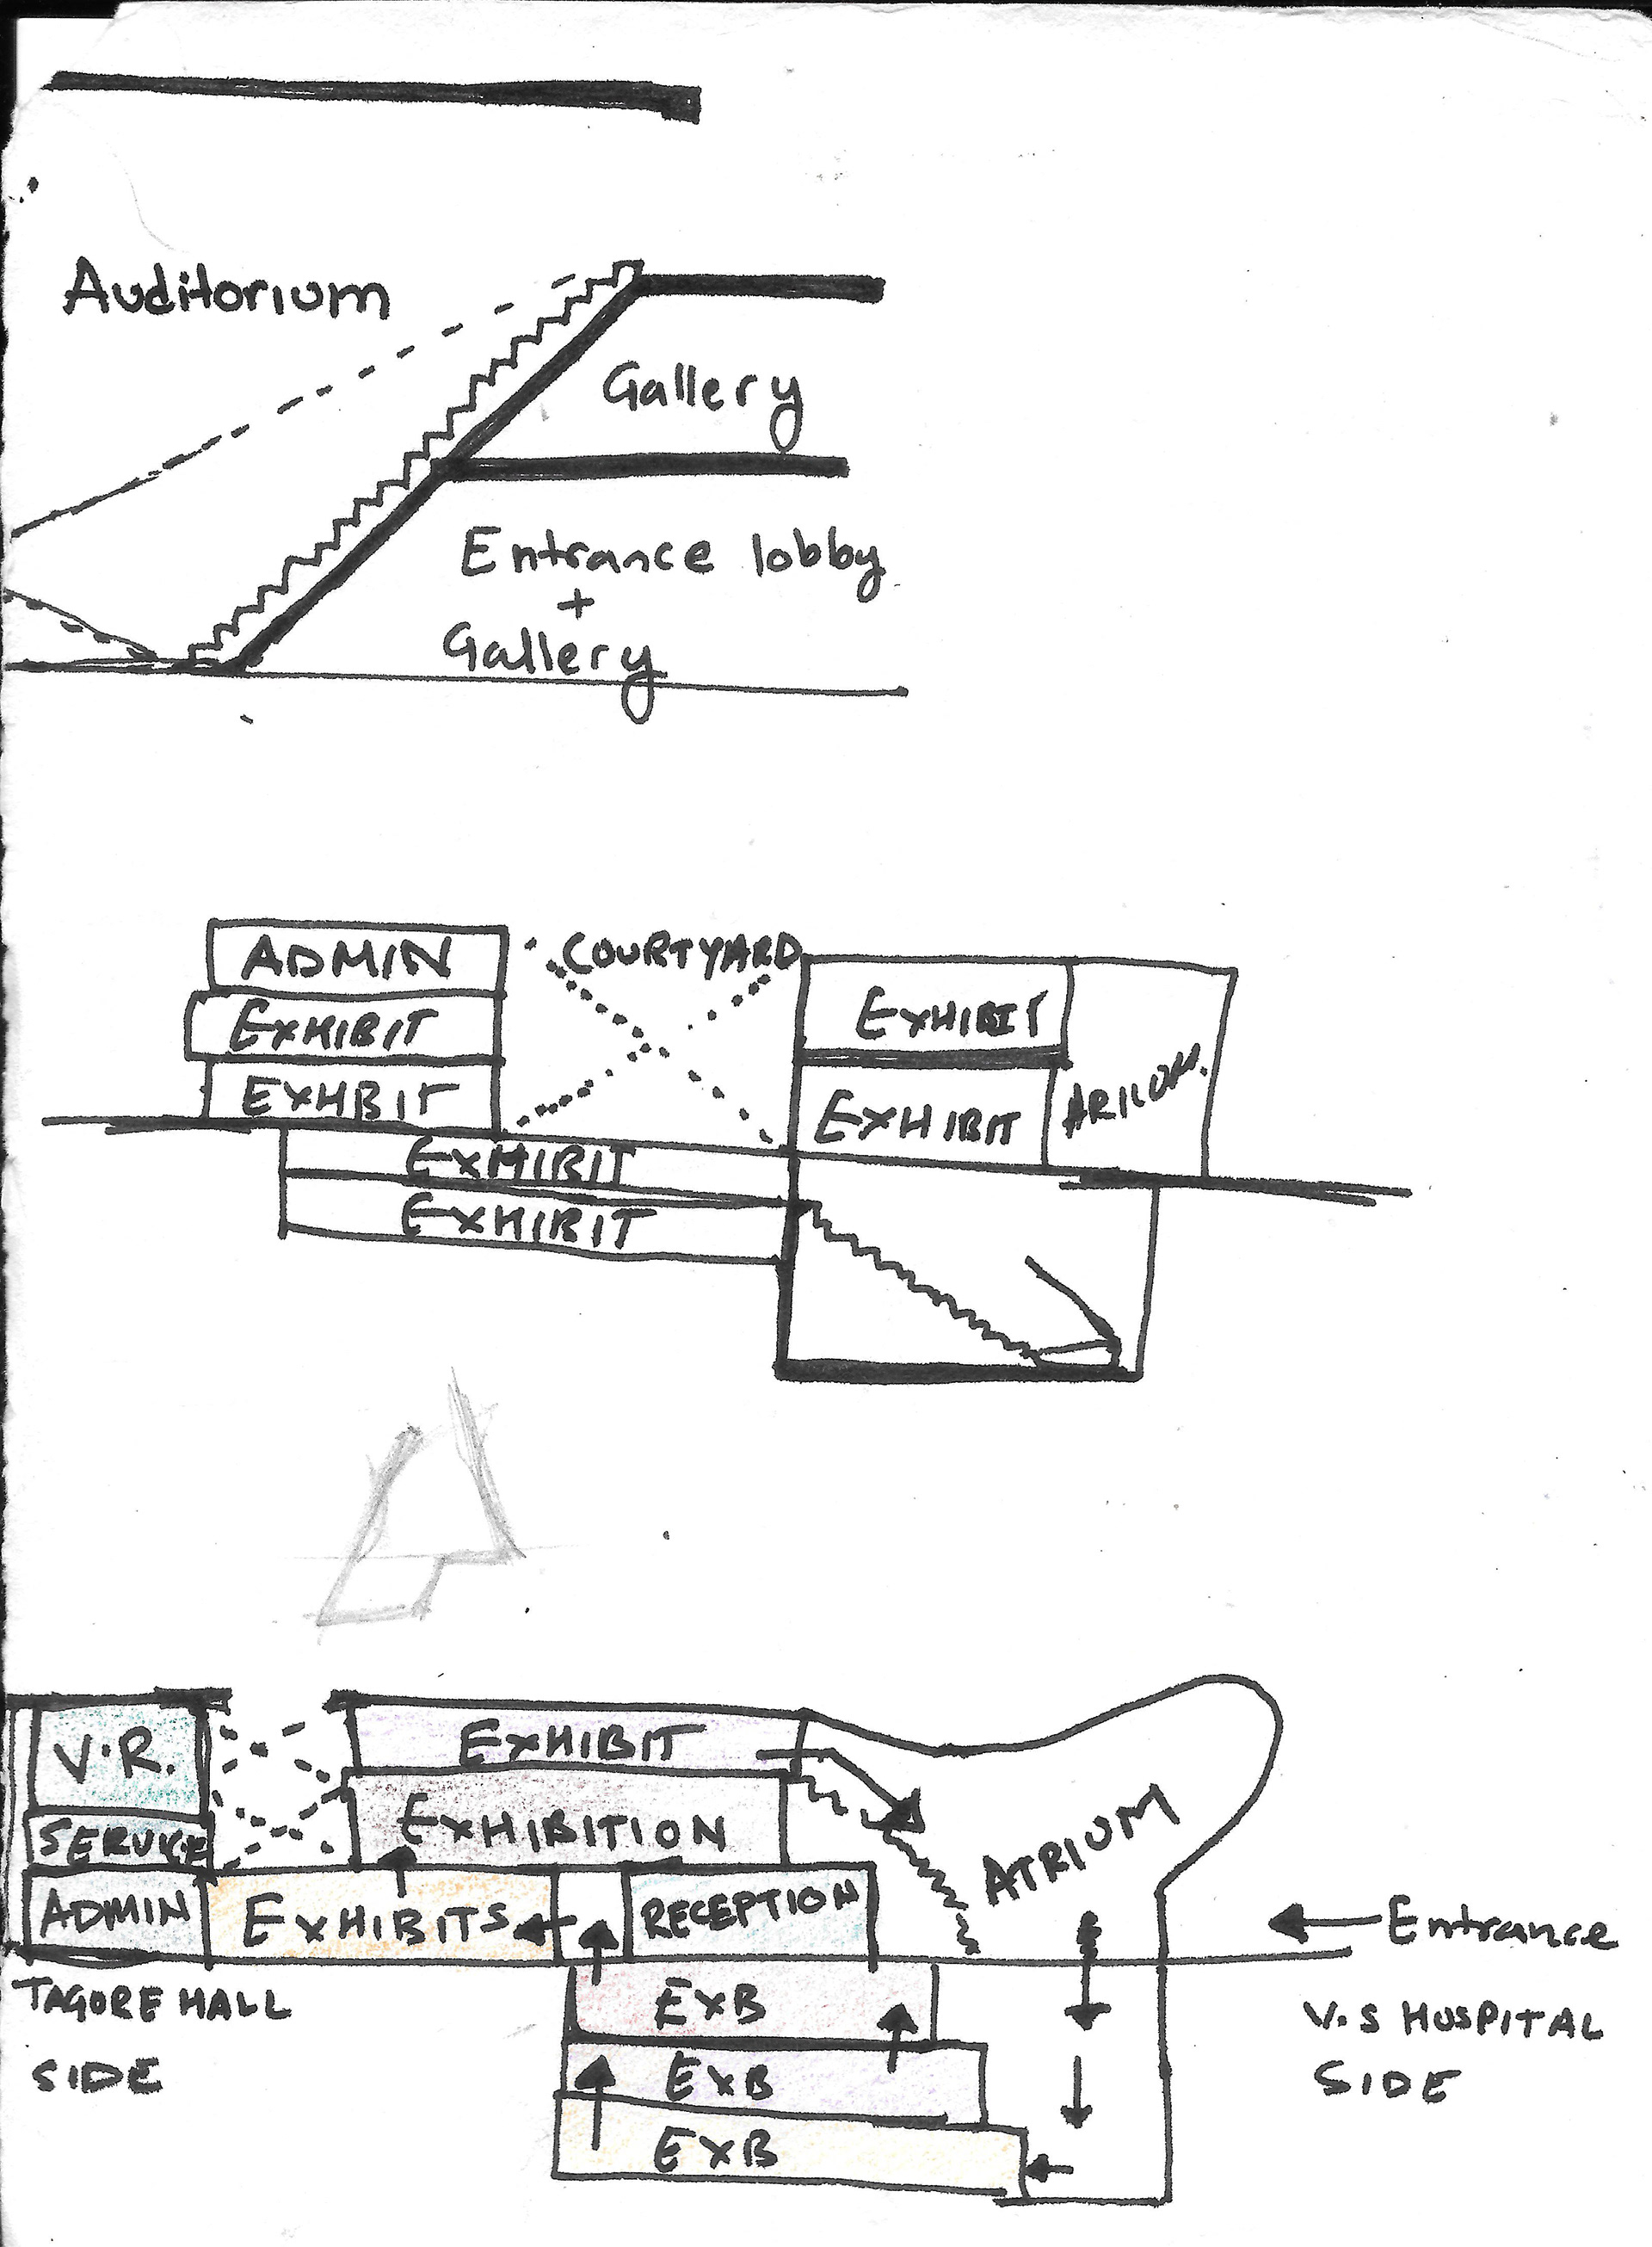 Auditorium
Gallery
Entrance lobby
+
Gallery
ADMIN
COURTYARD
EXHIBIT
EXHBIT
EXHIBIT
EXHIBIT
EXHIBIT
EXHIBIT
ARIUM.
EXHIBIT
V.R.
SERVICE
ADMIN
EXHIBIT
EXHIBITION
EXHIBITS
RECEPTION
ATRIUM
Entrance
EXB
EXB
EXB
TAGORE HALL
SIDE
V.S HOSPITAL
SIDE